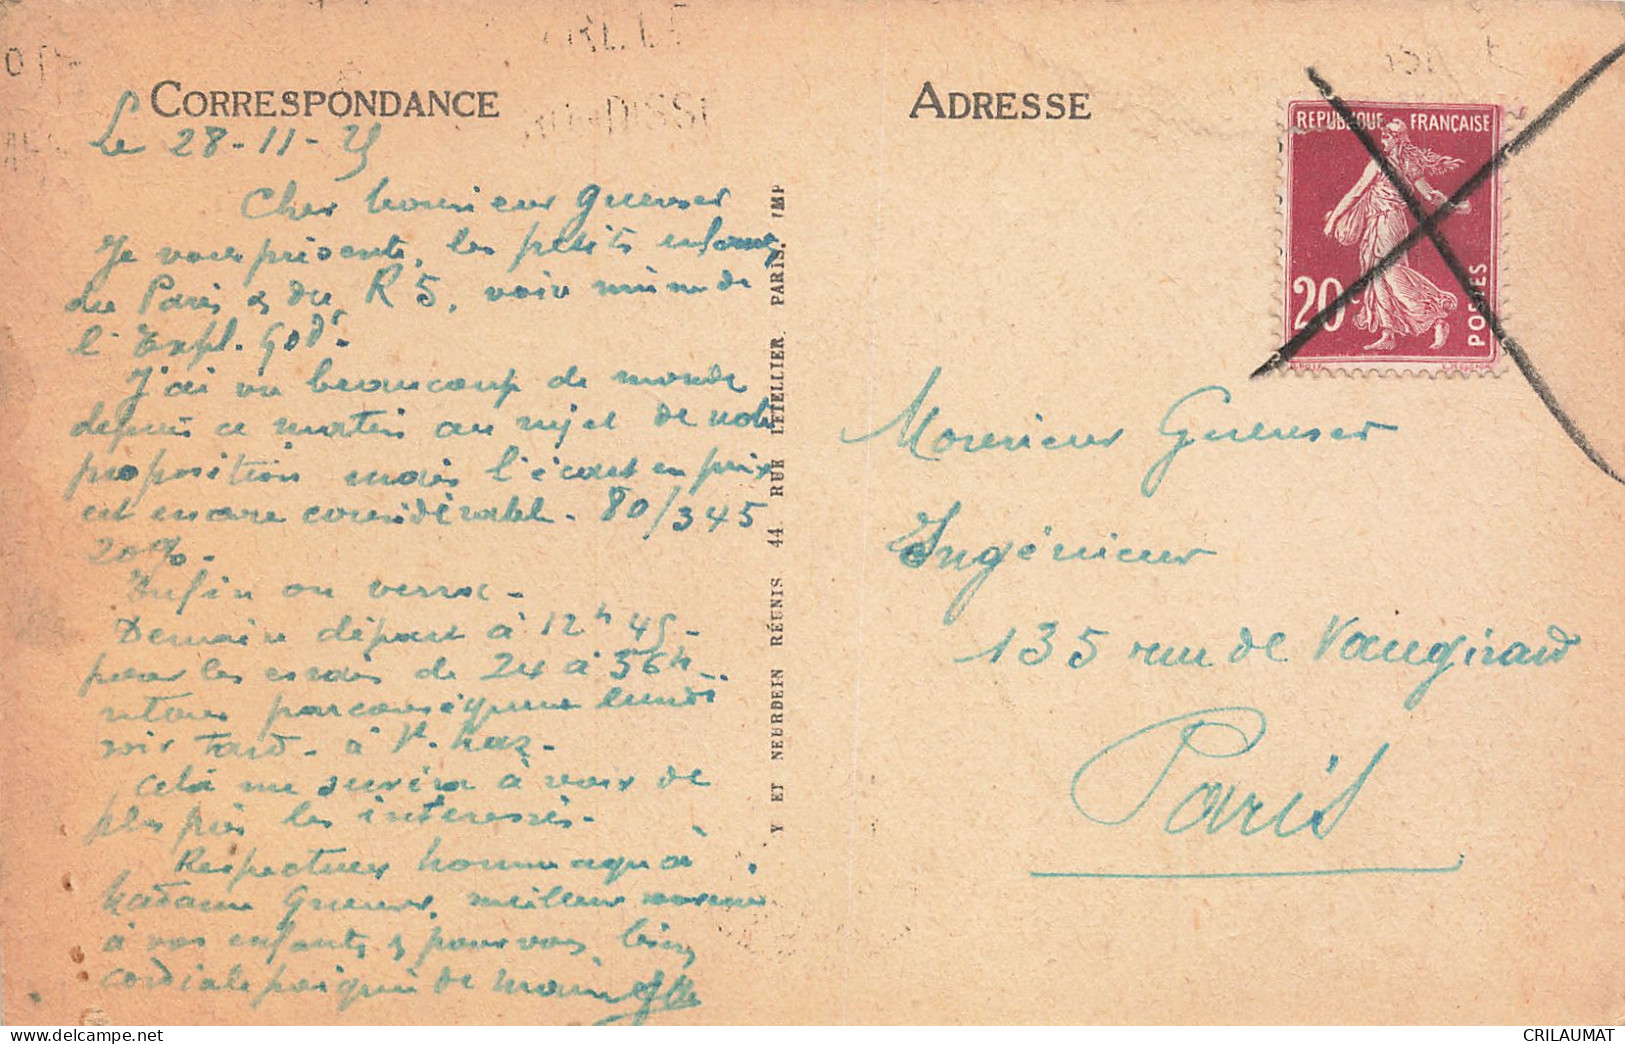 CORRESPONDANCE
ADRESSE
REPUBLIQUE FRANÇAISE
20 c
POSTES
Le 28-11-25
Cher Monsieur Gueuser
Je vous présente, les petits enfants
du Paris & du R5, voir
l'Expl. God.
J'ai vu beaucoup de monde
depuis ce matin au sujet de notre
proposition mais l'écart en prix
est encore considérable. 80/345
20%.
Enfin on verra.
Demain départ à 12h 45
pour les essais de 24 à 36h
retour par conséquent lundi
soir tard - à
Cela me servira à voir de
plus près les intéressés.
Respectueux hommages à
Madame Gueuser, meilleur
à vos enfants & pour vous bien
cordiale poignée de main
Y ET NEURDEIN RÉUNIS 44 RUE LETELLIER. PARIS. IMP
Monsieur Gueuser
Ingénieur
135 rue de Vaugirard
Paris
CRILAUMAT